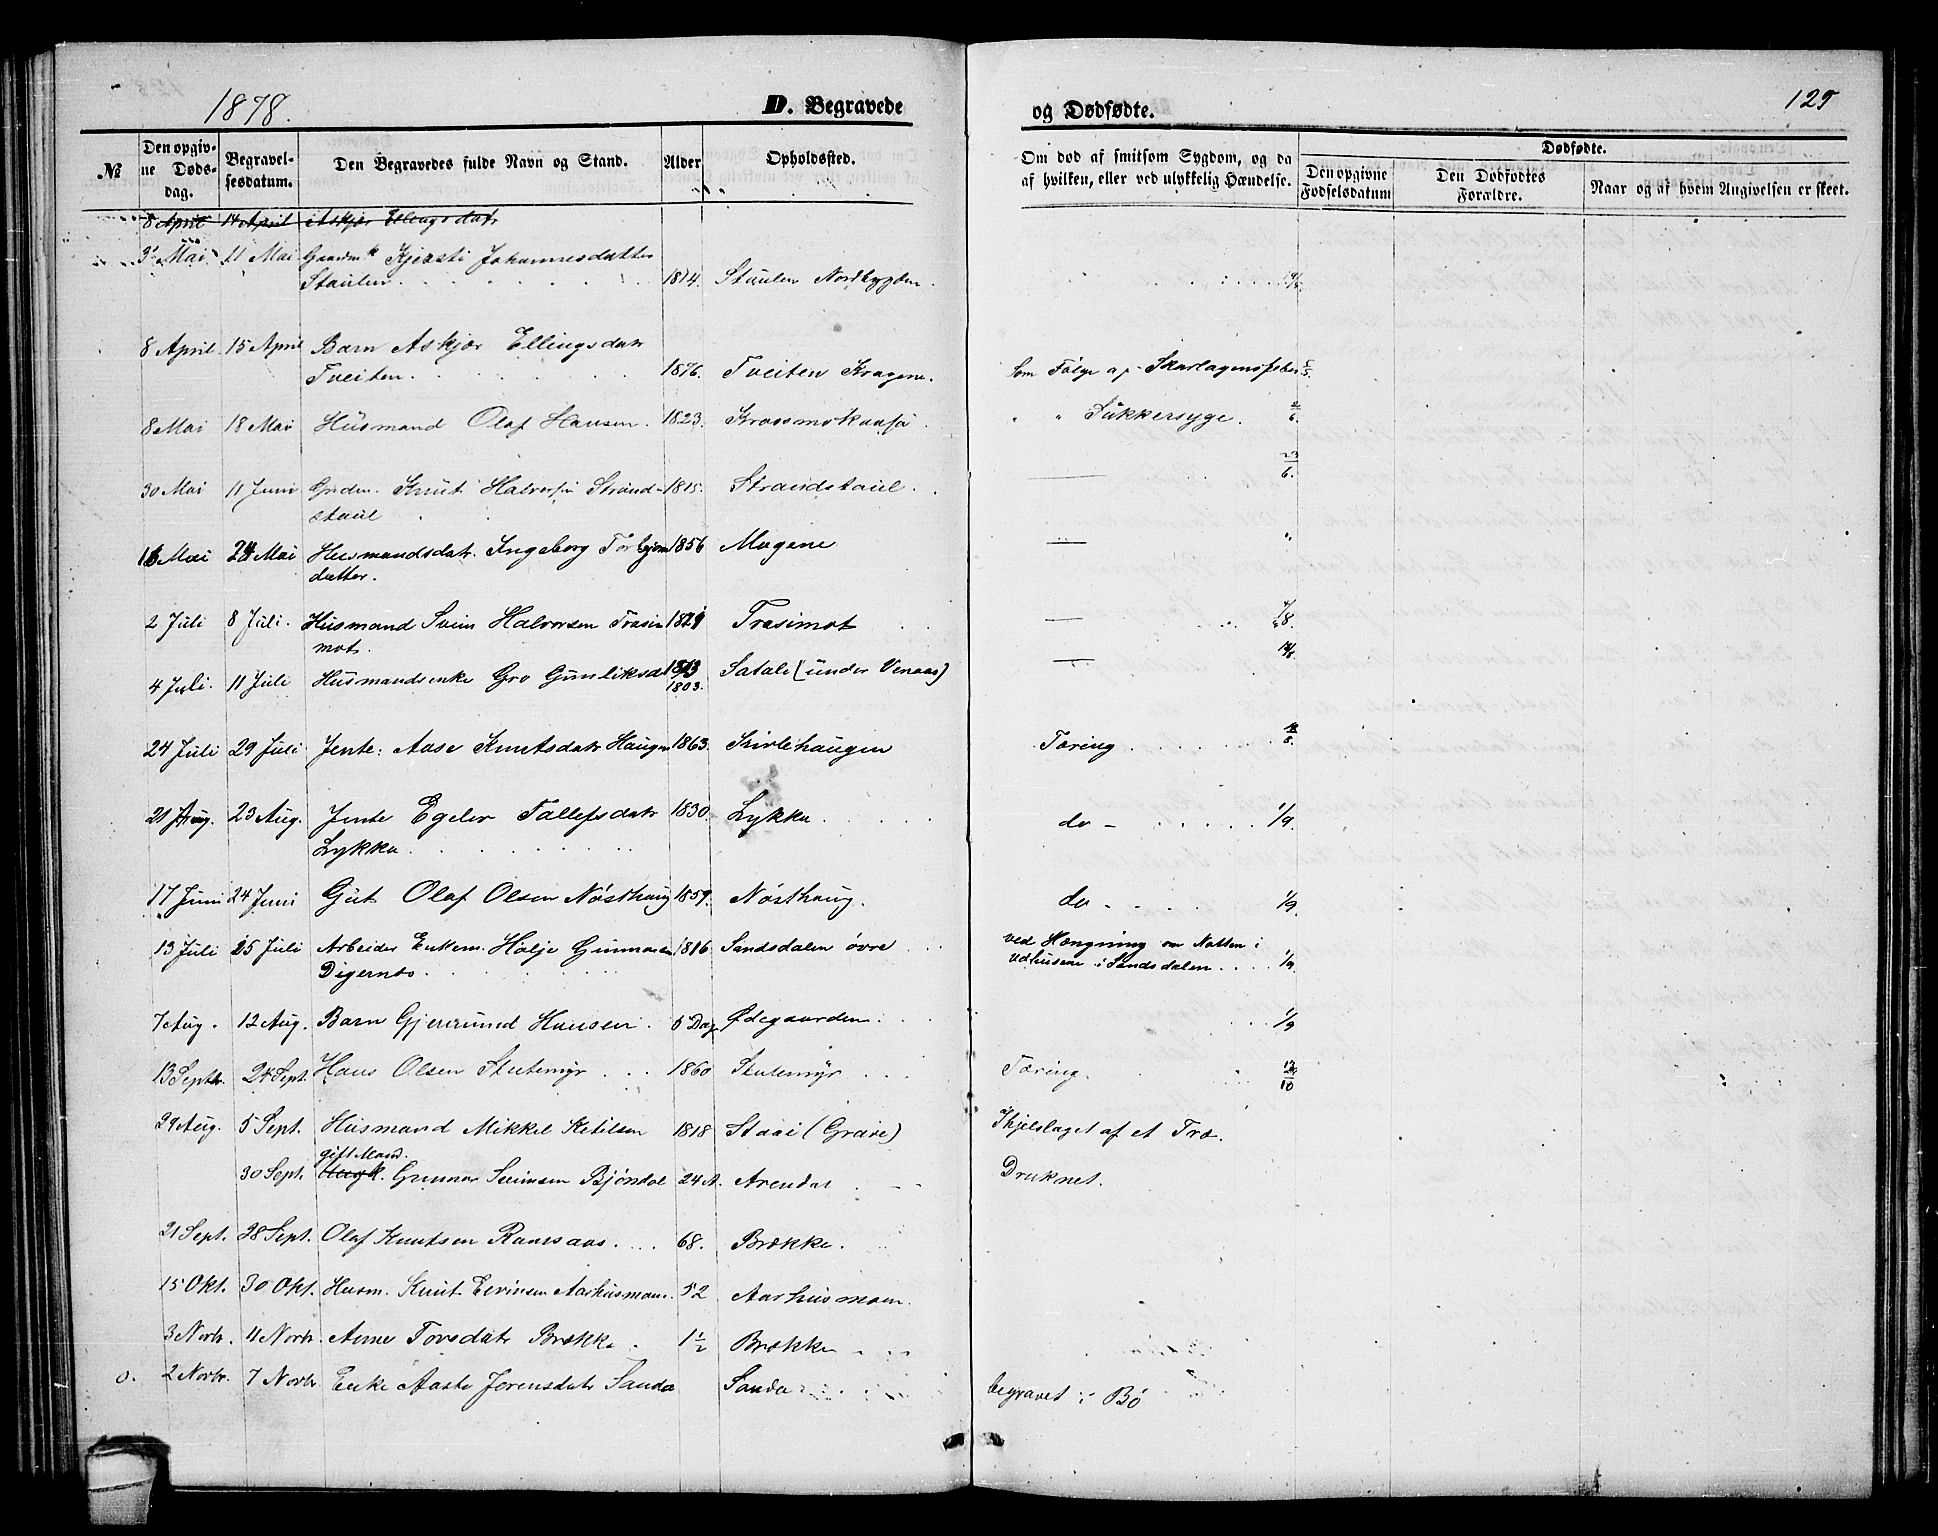 1878.
D. Begravede
og Dødfødte.
129
№
Den opgivne Dødsdag.
Begravelsesdatum.
Den Begravedes fulde Navn og Stand.
Alder
Opholdssted.
Om død af smitsom Sygdom, og da af hvilken, eller ved ulykkelig Hændelse.
Dødfødte.
Den opgivne Fødselsdatum
Den Dødfødtes Forældre.
Naar og af hvem Angivelsen er skeet.
8 April 14 April Askjær Ellingsdatr
Mai 11 Mai Kjersti Johannesdatter
Staulen 1814. Staulen Nordbygden.
8 April 15 April Barn Askjær Ellingsdatr
Tveiten. 1876. Tveiten Kragerø. Som Følge af Skarlagensfeber
8 Mai 18 Mai Husmand Olaf Hansen. 1823. " " Sukkersyge. 2/6.
30 Mai 11 Juni Knut Halvorsen Strand- 1815. Strandstaul. 23/6.
staul
16 Mai 24 Mai Husmandsdatr. Ingeborg Torbjørn 1856 Mogene "
datter.
2 Juli 8 Juli. Husmand Svein Halvorsen Trasi 1821 Trasimot
mot.
4 Juli. 11 Juli Husmandsenke Gro Gunliksd 1803. Satale (under Venaas)
24 Juli 29 Juli Jente: Aase Knutsdatr Haugen 1863. Kirlehaugen Tæring
21 Aug. 23 Aug. Jente Egelev Tallefsdatr 1830. Lykka. do - 1/9.
Lykka.
17 Juni 24 Juni Gut Olaf Olsen Nøsthaug 1859. Nøsthaug. do - 1/9.
13 Juli 25 Juli Arbeider Enkem. Halje Gunnarsen 1816. Sandsdalen øvre ved Hængning om Natten i
Digernes. Udhusene i Sandsdalen 1/9
7 Aug. 12 Aug. Barn Gjermund Hansen. 6 Dag Ødegaarden. 1/9
13 Septbr. 24 Sept. Hans Olsen Stutemyr 1860 Stutemyr Tæring.
29 Aug. 5 Sept. Husmand Mikkel Ketilsen 1818 Staai (Grave) Ihjelslaget af et Træ.
gift Mand.
30 Sept. Ungk. Gunnar Sveinsen Bjøndal 24 A. Arendal Druknet.
21 Sept. 28 Sept. Olaf Knudsen Ramsaas. 68. Brække.
15 Okt. 30 Okt. Husm. Knut Eivinsen Aarhusmoen. 52 Aarhusmoen.
3 Novbr. 4 Novbr. Anne Torsdatr Brække. 1 1/2 Brække
0. 2 Novbr. 7 Novbr Enke Aaste Jorensdatr Sanda Sanda begravet i Bø